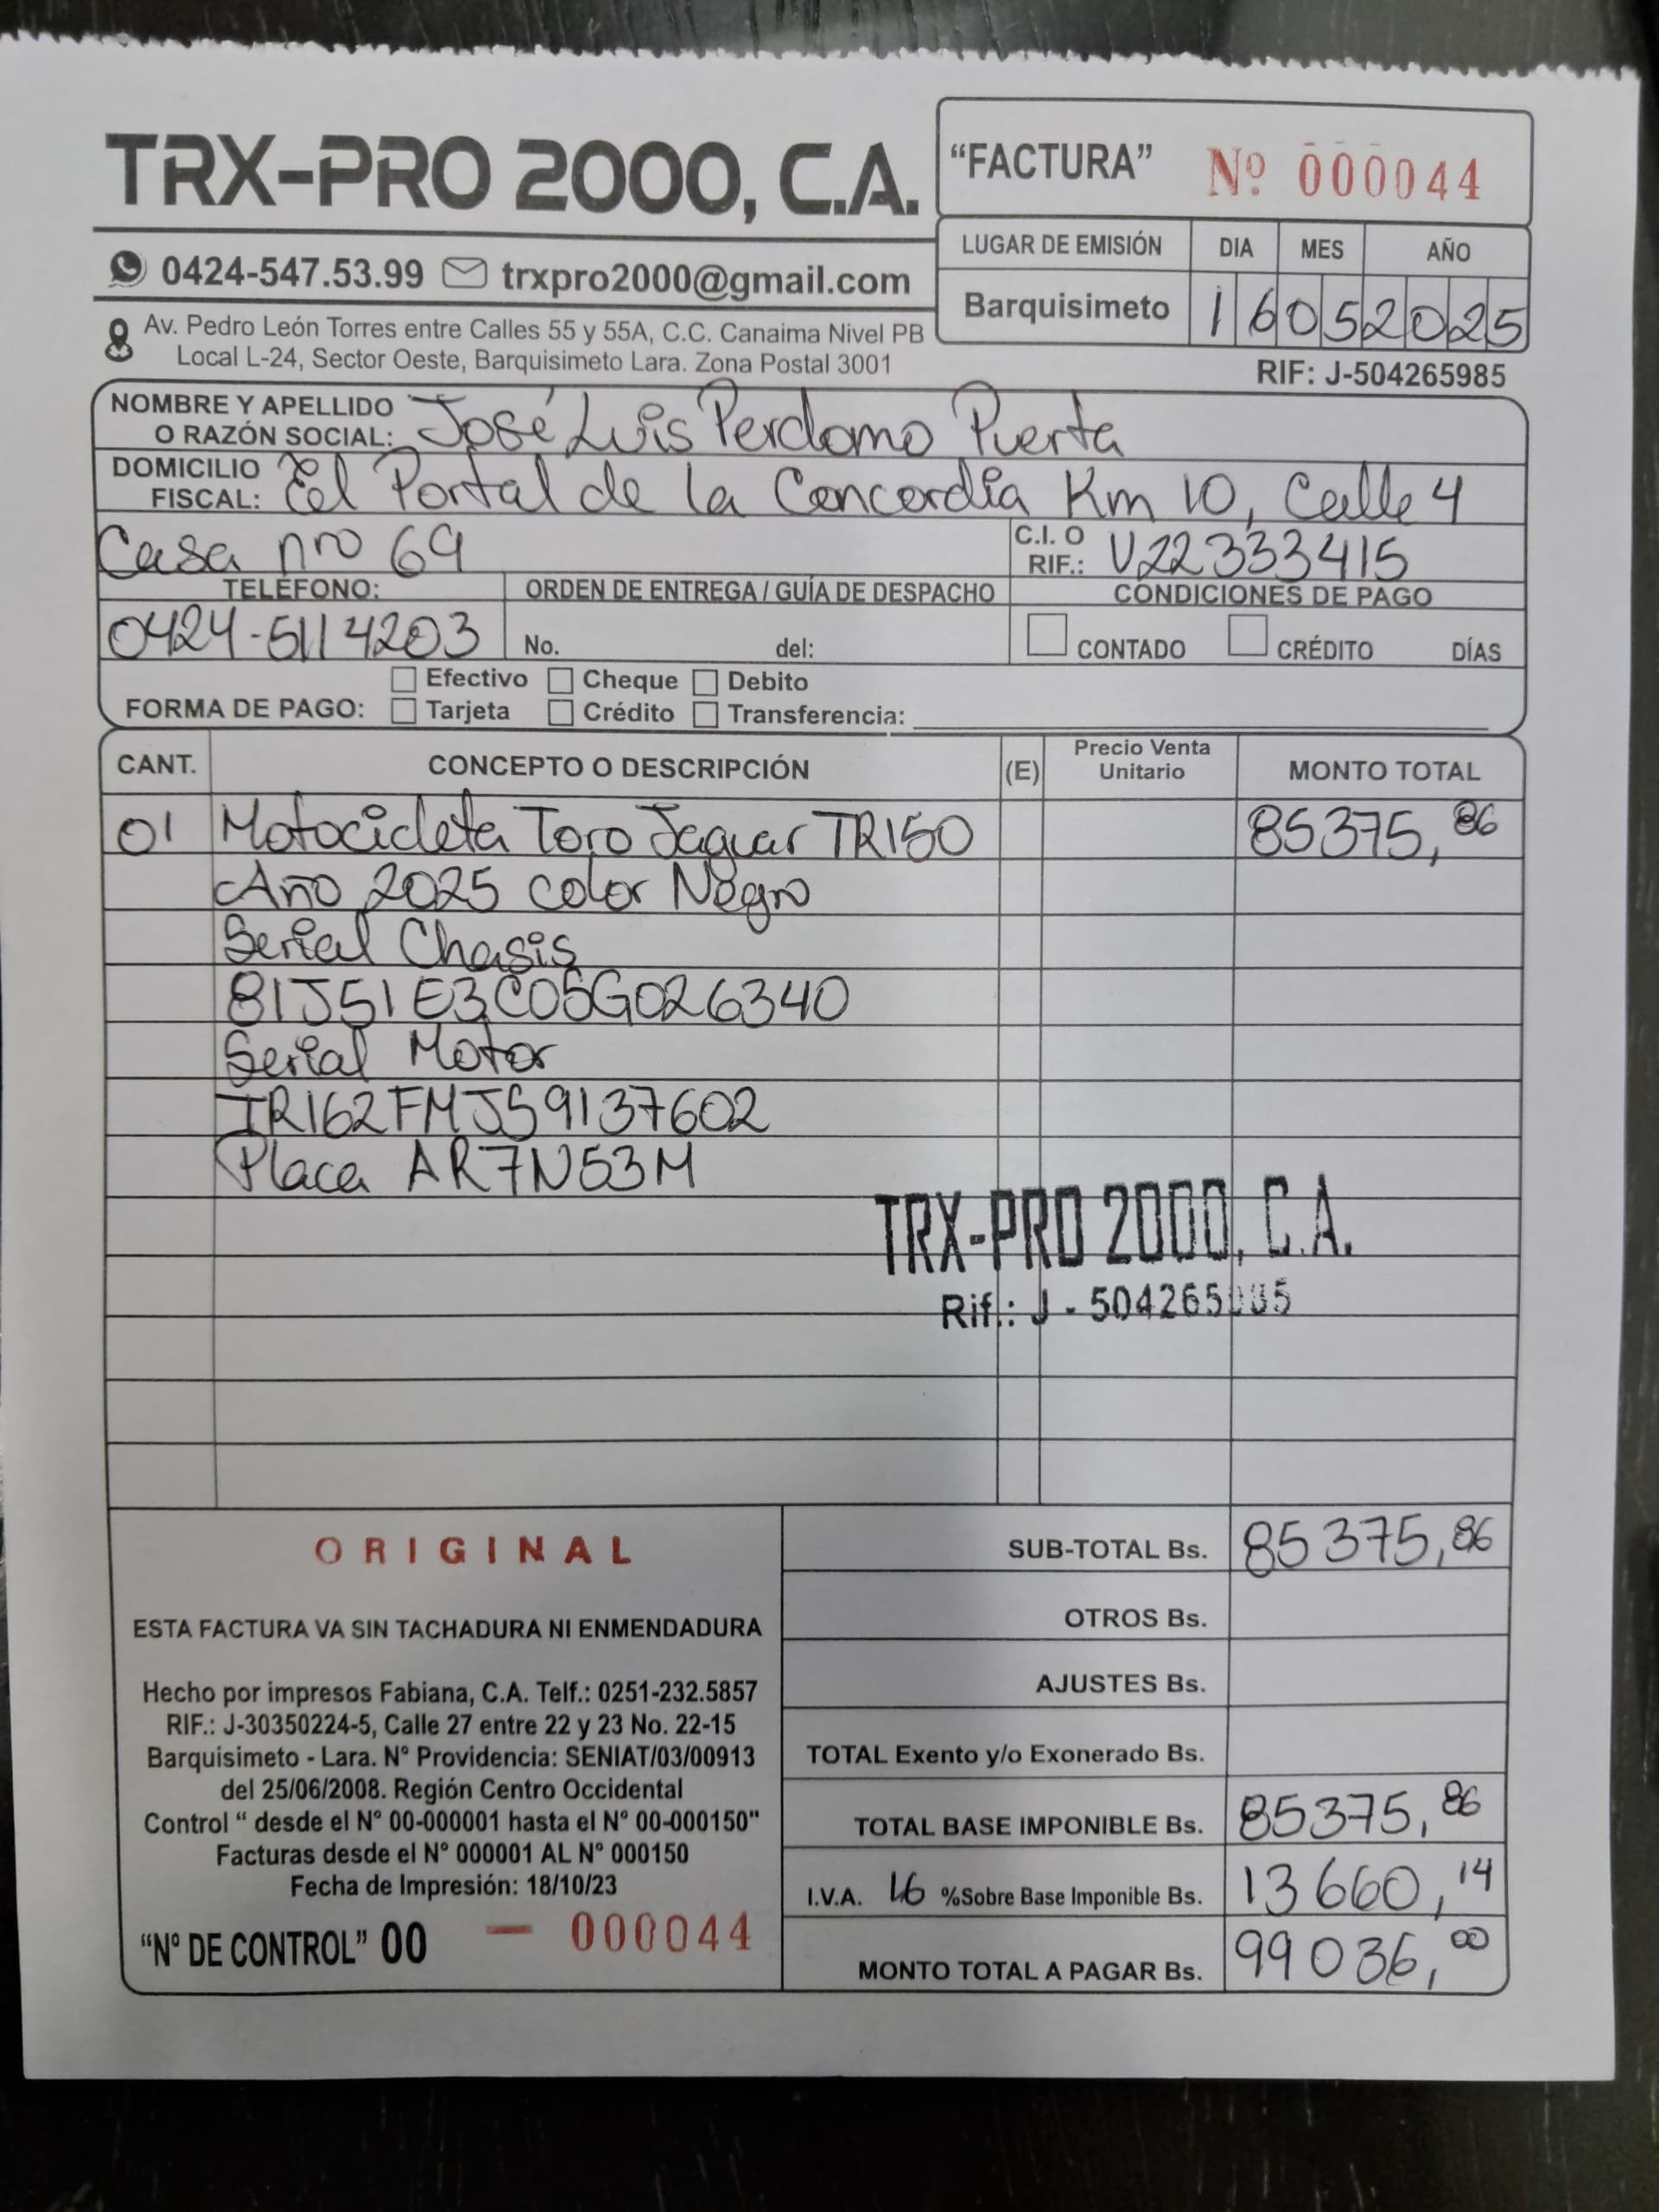 TRX-PRO 2000, C.A.
"FACTURA" Nº 000044
LUGAR DE EMISIÓN DIA MES AÑO
Barquisimeto 16 05 2025
0424-547.53.99 trxpro2000@gmail.com
Av. Pedro León Torres entre Calles 55 y 55A, C.C. Canaima Nivel PB
Local L-24, Sector Oeste, Barquisimeto Lara. Zona Postal 3001
RIF: J-504265985
NOMBRE Y APELLIDO
O RAZÓN SOCIAL: José Luis Perdomo Puerta
DOMICILIO
FISCAL: El Portal de la Concordia Km 10, Calle 4
Casa nro 69
C.I. O
RIF.: V22333415
TELÉFONO: ORDEN DE ENTREGA / GUÍA DE DESPACHO CONDICIONES DE PAGO
0424-5114203 No. del: CONTADO CRÉDITO DÍAS
Efectivo Cheque Debito
FORMA DE PAGO: Tarjeta Crédito Transferencia:
CANT. CONCEPTO O DESCRIPCIÓN (E) Precio Venta Unitario MONTO TOTAL
01 Motocicleta Toro Jaguar TR150 85375,86
Año 2025 color Negro
Serial Chasis
81J51E3C05G026340
Serial Motor
TR162FMJS9137602
Placa AR7N53M
TRX-PRO 2000, C.A.
Rif.: J - 504265985
ORIGINAL
ESTA FACTURA VA SIN TACHADURA NI ENMENDADURA
Hecho por impresos Fabiana, C.A. Telf.: 0251-232.5857
RIF.: J-30350224-5, Calle 27 entre 22 y 23 No. 22-15
Barquisimeto - Lara. N° Providencia: SENIAT/03/00913
del 25/06/2008. Región Centro Occidental
Control " desde el N° 00-000001 hasta el N° 00-000150"
Facturas desde el N° 000001 AL N° 000150
Fecha de Impresión: 18/10/23
"N° DE CONTROL" 00 - 000044
SUB-TOTAL Bs. 85375,86
OTROS Bs.
AJUSTES Bs.
TOTAL Exento y/o Exonerado Bs.
TOTAL BASE IMPONIBLE Bs. 85375,86
I.V.A. 16 %Sobre Base Imponible Bs. 13660,14
MONTO TOTAL A PAGAR Bs. 99036,00